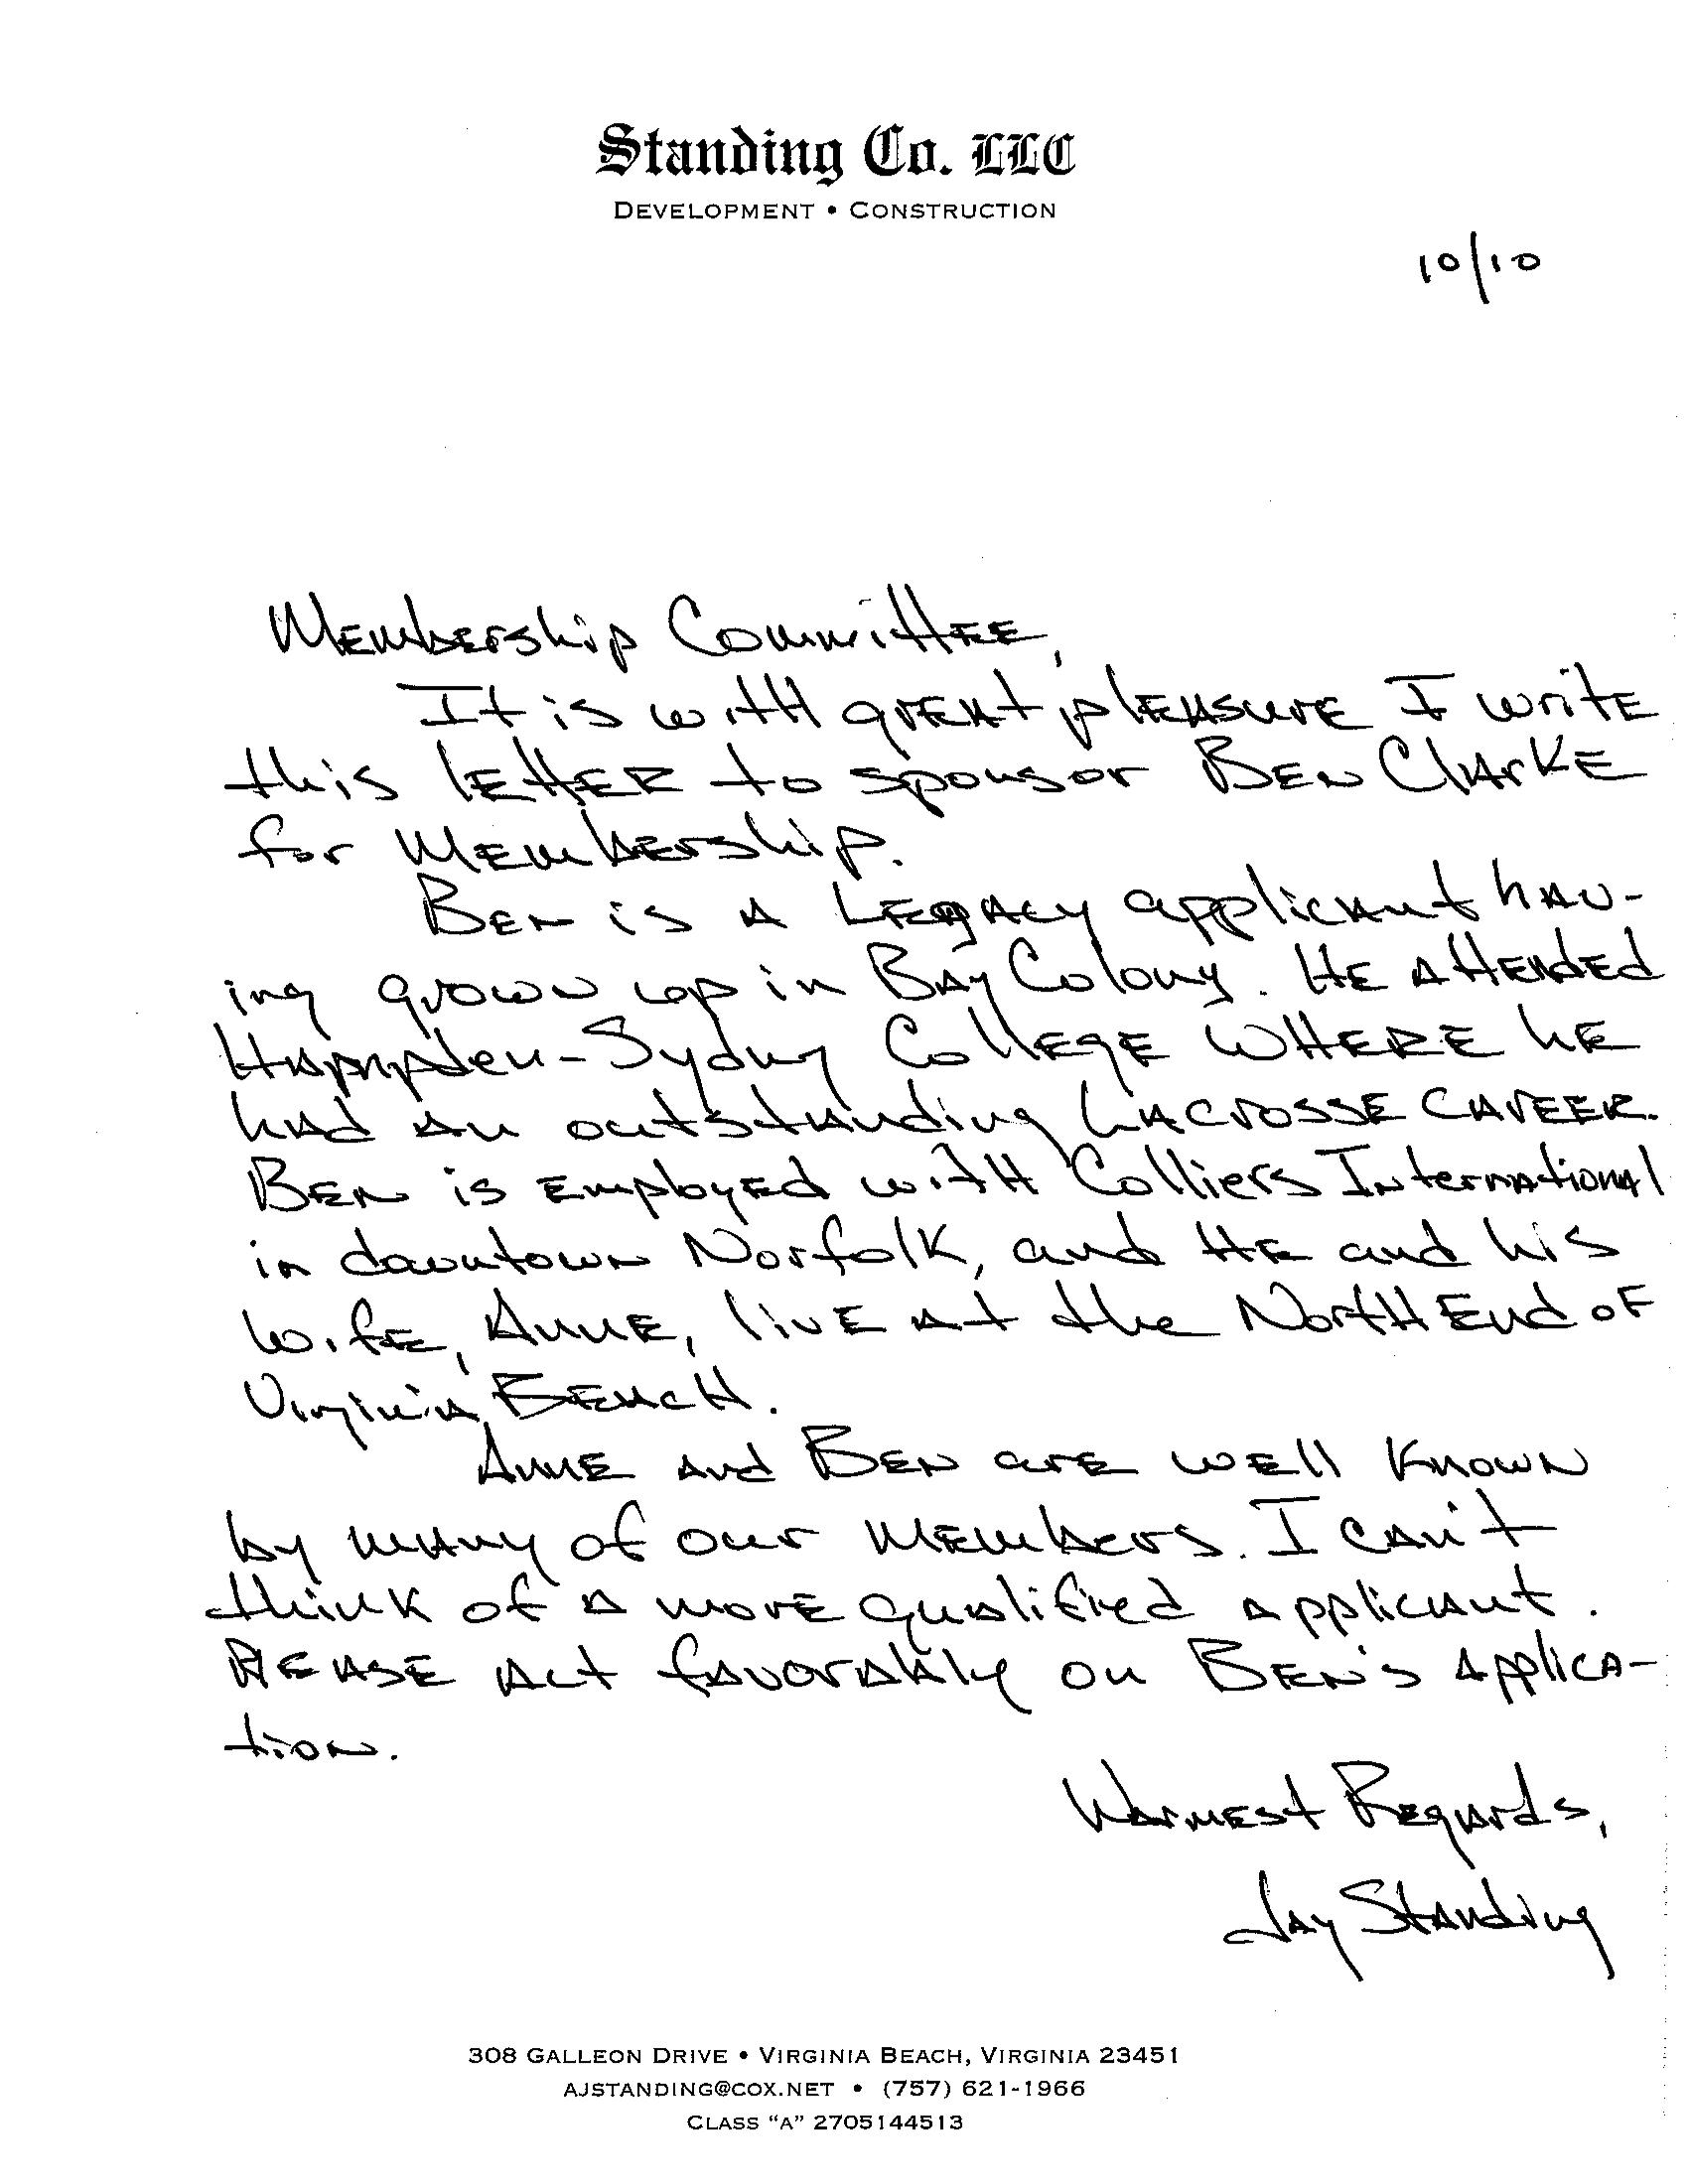 Standing Co. LLC
DEVELOPMENT • CONSTRUCTION
10/10
Membership Committee,
It is with great pleasure I write
this letter to sponsor Ben Clarke
for Membership.
Ben is a Legacy applicant hav-
ing grown up in Bay Colony. He attended
Hampden-Sydny College where he
had an outstanding Lacrosse career.
Ben is employed with Colliers International
in downtown Norfolk, and he and his
wife, Anne, live at the North End of
Virginia Beach.
Anne and Ben are well known
by many of our members. I can't
think of a more qualified applicant.
Please act favorably on Ben's applica-
tion.
Warmest Regards,
Jay Standing
308 GALLEON DRIVE • VIRGINIA BEACH, VIRGINIA 23451
AJSTANDING@COX.NET • (757) 621-1966
CLASS "A" 2705144513